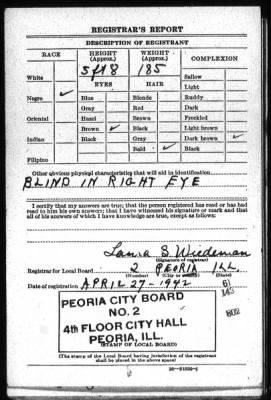 REGISTRAR'S REPORT
DESCRIPTION OF REGISTRANT
RACE HEIGHT (Approx.) WEIGHT (Approx.) COMPLEXION
5ft8 185
White Sallow
EYES HAIR Light
Negro ✓ Blue Blonde Ruddy
Gray Red Dark
Oriental Hazel Brown Freckled
Brown ✓ Black Light brown
Indian Black Gray Dark brown ✓
Bald ✓ Black
Filipino
Other obvious physical characteristics that will aid in identification
BLIND IN RIGHT EYE
I certify that my answers are true; that the person registered has read or has
had read to him his own answers; that I have witnessed his signature or mark and that
all of his answers of which I have knowledge are true, except as follows:
Laura S. Wiedeman
(Signature of registrar)
Registrar for Local Board 2 PEORIA ILL.
(Number) (City or county) (State)
Date of registration APRIL 27-1942
PEORIA CITY BOARD
NO. 2
4TH FLOOR CITY HALL
PEORIA, ILL.
(STAMP OF LOCAL BOARD)
(The stamp of the Local Board having jurisdiction of the registrant
shall be placed in the above space)
802